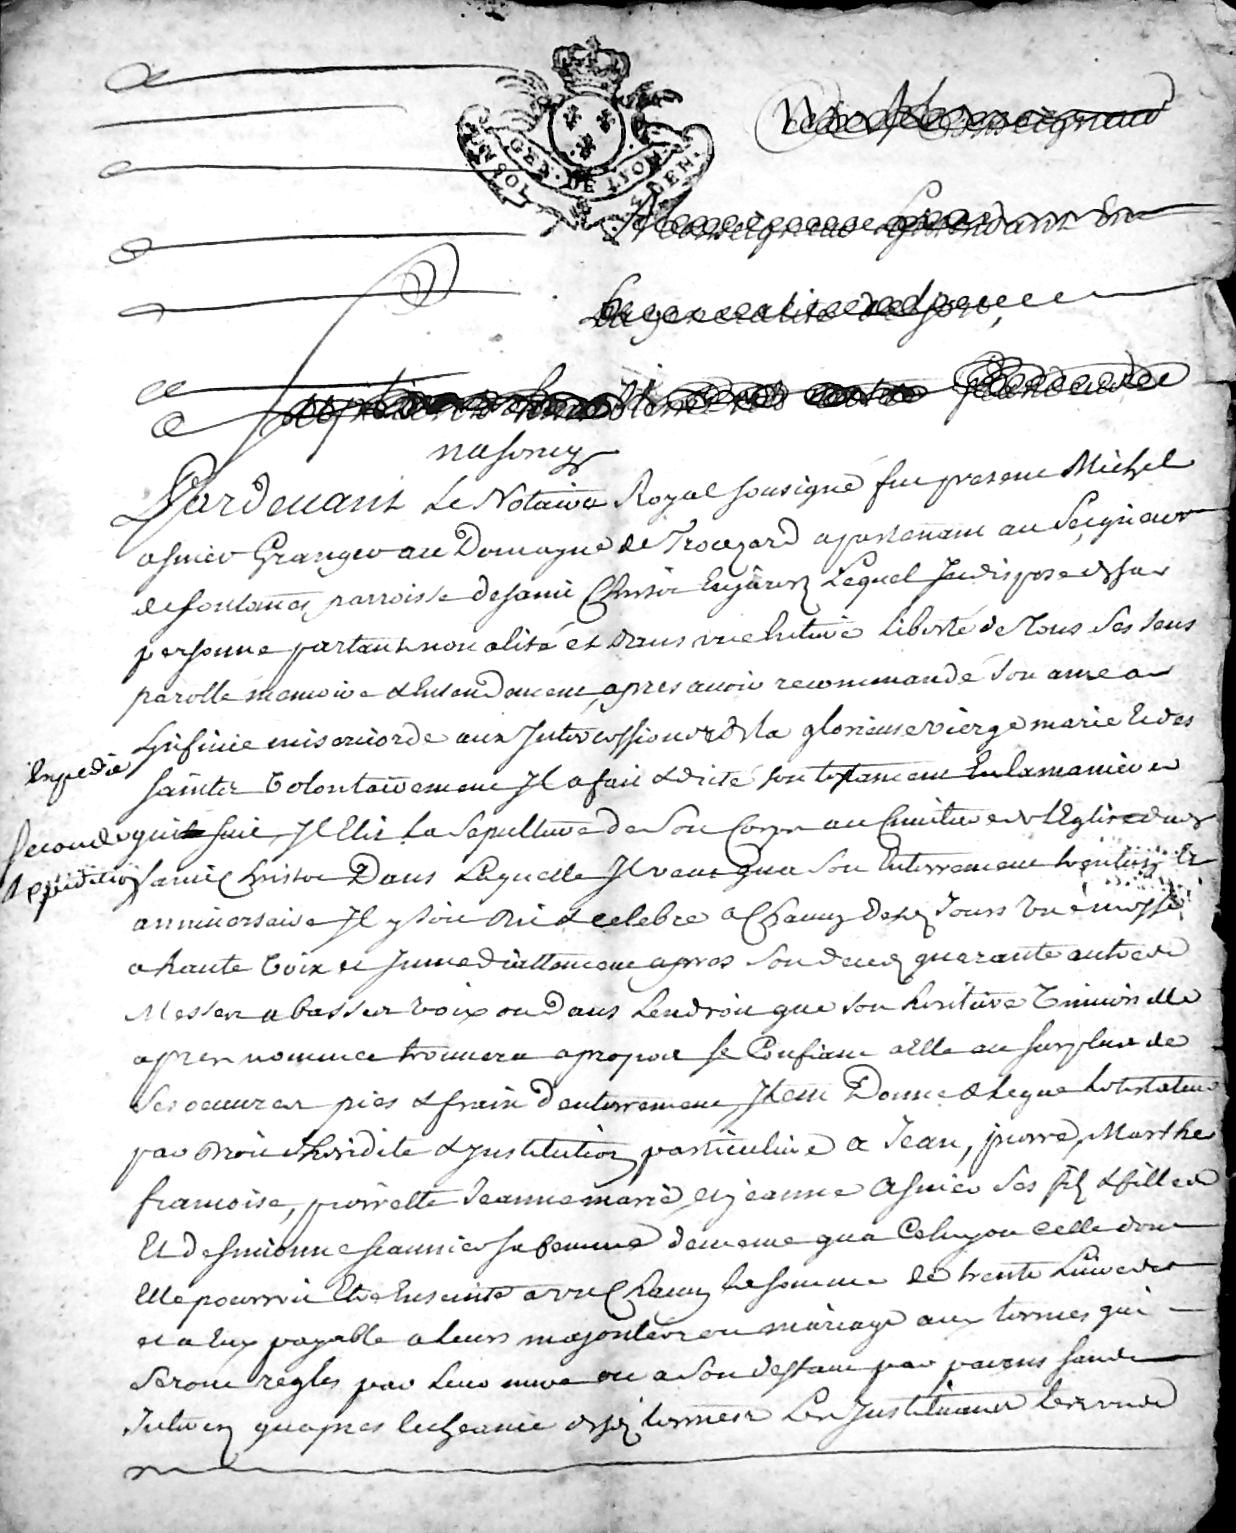 GEN. DE LYON.
Monseigneur
Monseigneur Lintendant de
La generalité de Lyon,
nasoncy
Pardevant Le Notaire Royal sousigné fut present Michel
asnier Granger au Domayne de Trouzard apartenant au Seigneur
de fontanes parroisse de saint Christo Lequel Indispose de sa
personne partant non alité et dans une Entiere liberté de Tous ses sens
parolle memoire & Entendement, apres avoir recommandé son ame a
Linfinie misericorde aux Intercessions de la glorieuse vierge marie & des
saints Volontairement Il a fait & dicté son testament En la maniere
Expedié
qui suit Il Elit La sepulture de Son Corps au Cimitiere de L'Eglise dud
Seconde
Expedition
saint Christo Dans Laquelle Il veut qua son Enterrement trentin &
anniversaire Il y soit dit & celebré a Chacun desd Jours une messe
a haute Voix et Immediattement apres son deced quarante autres
Messes a basses voix ou Dans Lendroit que son heritiere Universelle
apres nommée trouvera apropos se Confiant a Elle au surplus de
Ses oeuvres pies & frais denterrement, Item Donne & Legue Le testateur
par droit dhoridite & Institution particuliere a Jean, pierre, Marthe
francoise, pierrette Jeanne marie et jeanne Asnier ses fils & filles
Et de simonne Jeannier sa femme de meme qua Celuy ou celle dont
Elle pourroit Etre Enceinte a un Chacun la somme de trente Livres
et a Eux payable a leurs majorités ou mariage aux termes qui
Seront reglés par Leur mere ou a son deffaut par parens sans
Interets quapres lecheance desd termes Les Instituant